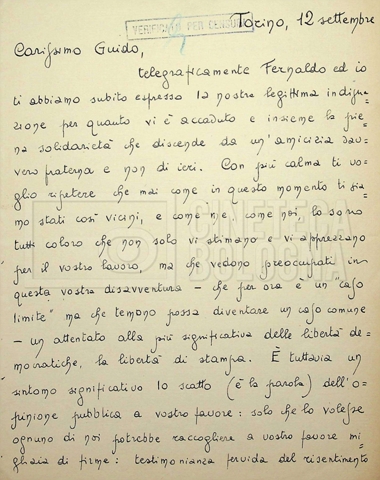 VERIFICATO PER CENSURA
Torino, 12 settembre
Carissimo Guido,
telegraficamente Fernaldo ed io
ti abbiamo subito espresso la nostra legittima indigna-
zione per quanto vi è accaduto e insieme la pie-
na solidarietà che discende da un'amicizia dav-
vero fraterna e non di ieri. Con più calma ti vo-
glio ripetere che mai come in questo momento ti sia-
mo stati così vicini, e come me, come noi, lo sono
tutti coloro che non solo vi stimano e vi apprezzano
per il vostro lavoro, ma che vedono preoccupati in
questa vostra disavventura – che per ora è un "caso
limite" ma che temono possa diventare un caso comune
– un attentato alla più significativa delle libertà de-
mocratiche, la libertà di stampa. È tuttavia un
sintomo significativo lo scatto (è la parola) dell'o-
pinione pubblica a vostro favore: solo che lo volesse
ognuno di noi potrebbe raccogliere a vostro favore mi-
gliaia di firme: testimonianza fervida del risentimento
CINETECA
BOLOGNA